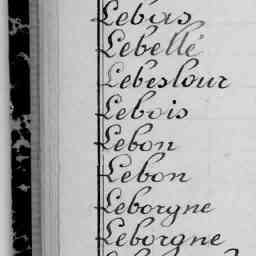 Lebas
Lebellé
Lebeslour
Lebois
Lebon
Lebon
Leborgne
Leborgne